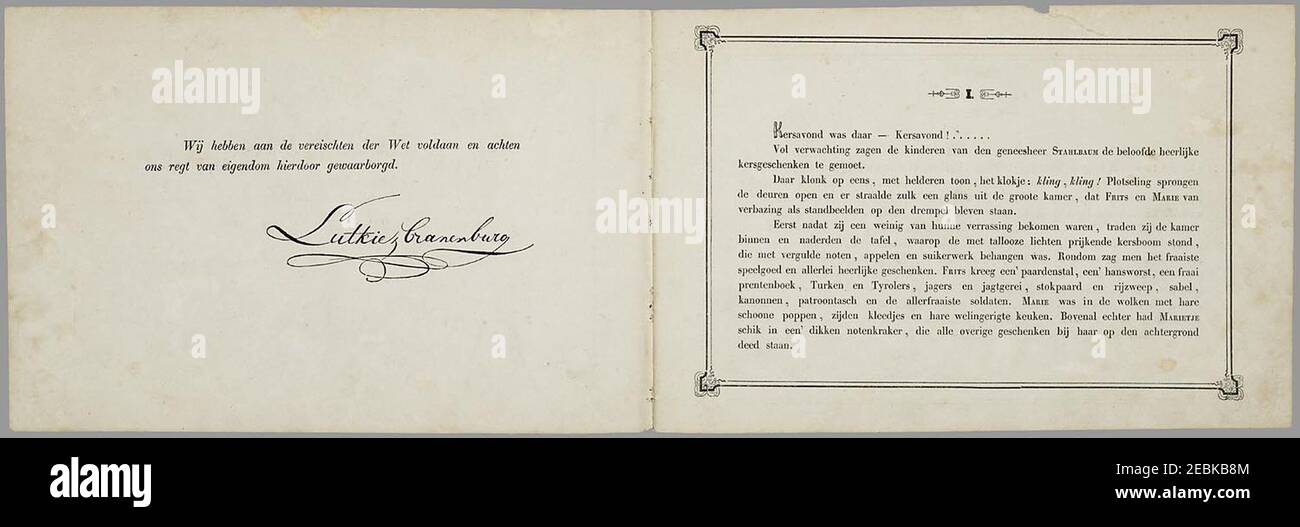 Wij hebben aan de vereischten der Wet voldaan en achten
ons regt van eigendom hierdoor gewaarborgd.
Lutkie & Cranenburg
I.
Kersavond was daar — Kersavond! . . . . . .
Vol verwachting zagen de kinderen van den geneesheer STAHLBAUM de beloofde heerlijke
kersgeschenken te gemoet.
Daar klonk op eens, met helderen toon, het klokje: kling, kling! Plotseling sprongen
de deuren open en er straalde zulk een glans uit de groote kamer, dat FRITS en MARIE van
verbazing als standbeelden op den drempel bleven staan.
Eerst nadat zij een weinig van hunne verrassing bekomen waren, traden zij de kamer
binnen en naderden de tafel, waarop de met tallooze lichten prijkende kersboom stond,
die met vergulde noten, appelen en suikerwerk behangen was. Rondom zag men het fraaiste
speelgoed en allerlei heerlijke geschenken. FRITS kreeg een' paardenstal, een' hansworst, een fraai
prentenboek, Turken en Tyrolers, jagers en jagtgerei, stokpaard en rijzweep, sabel,
kanonnen, patroontasch en de allerfraaiste soldaten. MARIE was in de wolken met hare
schoone poppen, zijden kleedjes en hare welingerigte keuken. Bovenal echter had MARIETJE
schik in een' dikken notenkraker, die alle overige geschenken bij haar op den achtergrond
deed staan.
alamy
2EBKB8M